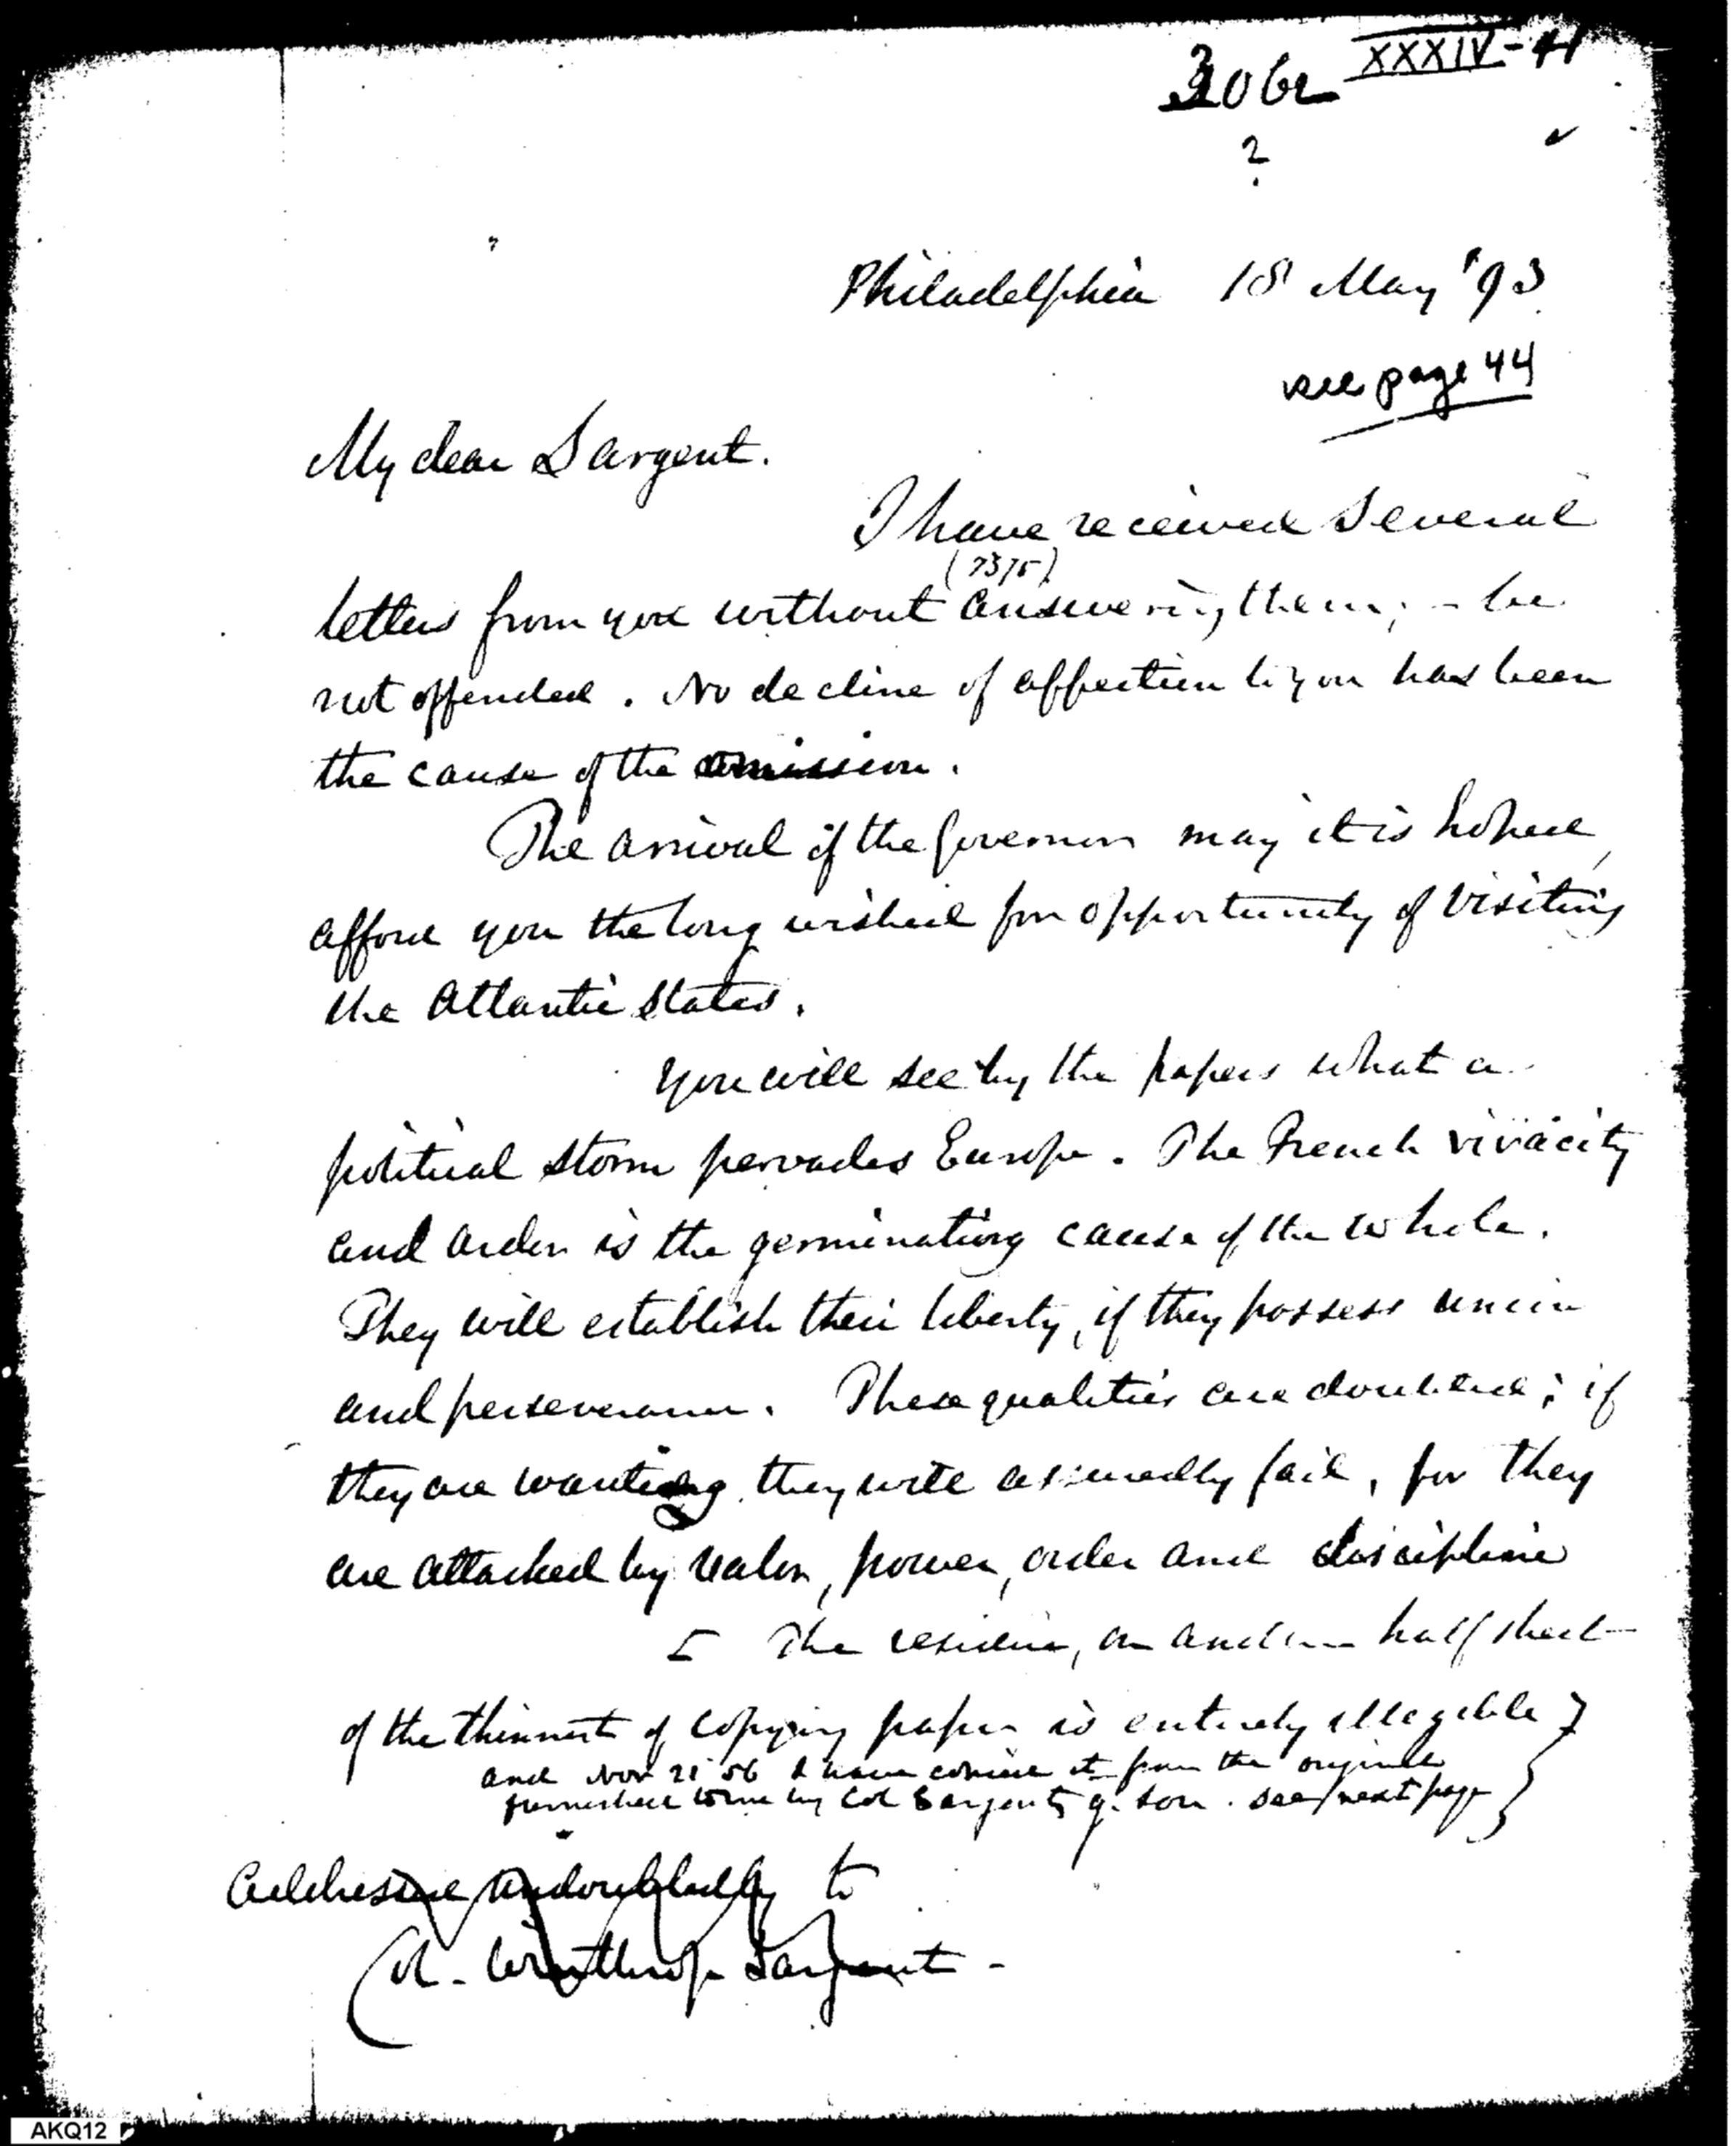 XXXIV-41
3062
?
Philadelphia 18 May '93
see page 44
My dear Sargent.
I have received several
(7375)
letters from you without answering them; - be
not offended. No decline of affection to you has been
the cause of the omission.
The arrival of the Governor may it is hoped,
afford you the long wished for opportunity of visiting
the Atlantic States.
You will see by the papers what a
political storm pervades Europe. The French vivacity
and ardor is the germinating cause of the whole.
They will establish their liberty, if they possess union
and perseverance. These qualities are doubted; if
they are wanting they will assuredly fail, for they
are attacked by valor, power, order and discipline
[ The residue, on another half sheet
of the thinnest of copying paper is entirely illegible }
and Nov 21 '56 I have copied it from the original
furnished to me by Col Sargents g. son. see next page
Addressed undoubtedly to
Col. Winthrop Sargent -
AKQ12